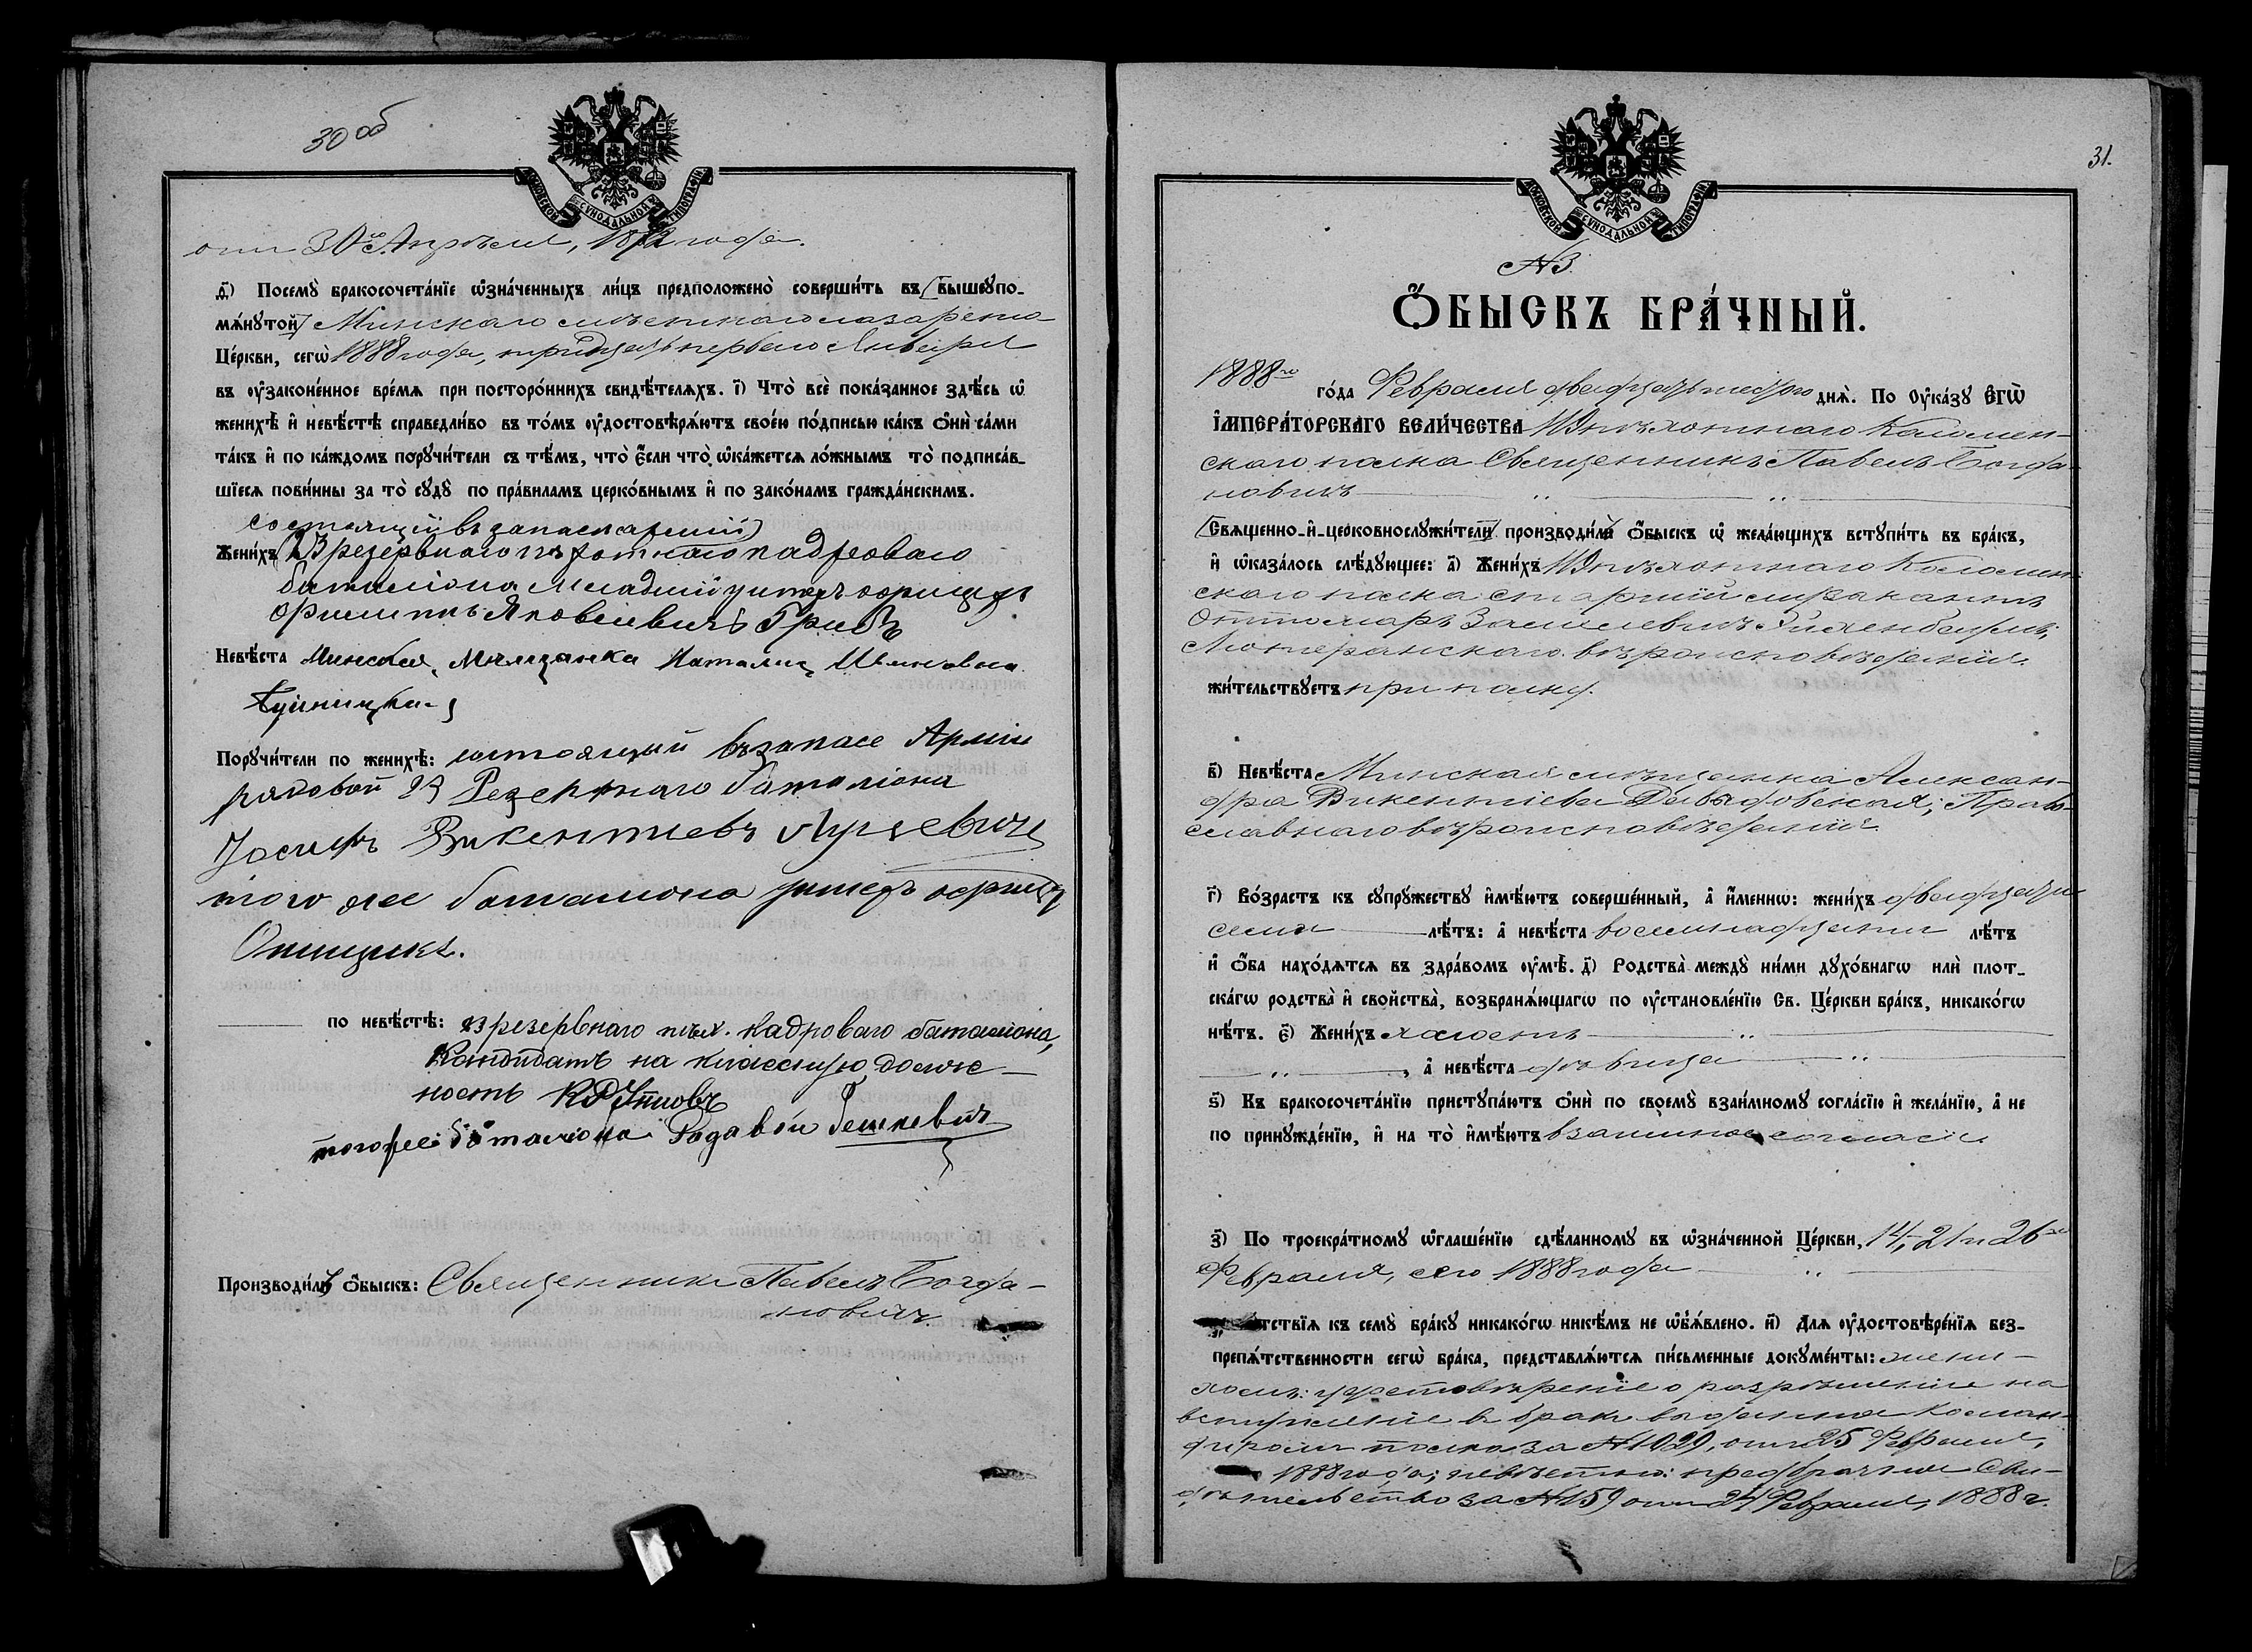 30 об
МОСКОВСКОЙ СѴНОДАЛЬНОЙ ТИПОГРАФІИ
отъ 30го Апрѣля, 1872 года.
д҃) Посемꙋ̀ бракосочета́нїе ѡ҆зна́ченныхъ ли́цъ предположено̀ соверши́ть въ вышеꙋпо-
мѧ́нꙋтой Минскаго мѣстнаго лазарета
Це́ркви, сегѡ̀ 1888 года, тридцать перваго Января
въ ѹ҆законе́нное вре́мѧ при посторо́ннихъ свидѣ́телѧхъ. і҃) Что̀ всѐ пока́занное здѣ́сь ѡ҆
женихѣ̀ и҆ невѣ́стѣ справедли́во въ то́мъ ѹ҆достовѣрѧ́ютъ свое́ю по́дписью ка́къ ѻ҆нѝ са́ми
та́къ и҆ по ка́ждомъ порꙋчи́тели съ тѣ́мъ, что̀ є҆́сли что̀ ѡ҆ка́жетсѧ ло́жнымъ то̀ подписа́в-
шїесѧ пови́нны за то̀ сꙋдꙋ̀ по пра́виламъ церко́внымъ и҆ по зако́намъ гражда́нскимъ.
состоящій въ запасѣ арміи
Жени́хъ 23 резервнаго пѣхотнаго кадроваго
баталіона Младшій унтеръ офицеръ
Филиппъ Яковлевичъ Грибъ
Невѣ́ста Минская Мѣщанка Наталія Ивановна
Порꙋчи́тели по женихѣ̀: состоящий въ запасе Арміи
рядовой 23 Резервнаго баталіона
Іосифъ Викентиевъ Луцевичъ
того же баталиона унтеръ офицеръ
Онищикъ.
по невѣ́стѣ: 23 резервнаго пѣх. кадроваго баталіона,
Кандидатъ на классную долж-
ность
тогоже баталиона Радавой Гешкевич
Производи́лъ ѻ҆́быскъ: Священникъ Павелъ Богда-
новичъ
31.
МОСКОВСКОЙ СѴНОДАЛЬНОЙ ТИПОГРАФІИ
№3.
Ѻ҆́БЫСКЪ БРА́ЧНЫЙ.
1888го го́да Февраля двадцать шестого днѧ̀. По Ѹ҆ка́зꙋ Є҆гѡ̀
І҆МПЕРА́ТОРСКАГО ВЕЛИ́ЧЕСТВА 119 пѣхотнаго Коломен-
скаго полка Священникъ Павелъ Богда-
новичъ
Свѧщенно-и҆-церковнослꙋжи́тели производи́лъ ѻ҆́быскъ ѡ҆ жела́ющихъ вступи́ть въ бра́къ,
и҆ ѡ҆каза́лось слѣ́дꙋющее: а҃) Жени́хъ 119 пѣхотнаго Коломен-
скаго полка старшій музыкантъ
Лютеранскаго вѣроисповѣданія.
жи́тельствꙋетъ при полку.
в҃) Невѣ́ста Минская мѣщанка Алексан-
дра Викентіева Давыдовская; Право-
славнаго вѣроисповѣданія
г҃) Во́зрастъ къ сꙋпрꙋ́жествꙋ и҆мѣ́ютъ соверше́нный, а҆ и҆́меннѡ: жени́хъ двадцати
семи лѣ́тъ: а҆ невѣ́ста восемнадцати лѣ́тъ
и҆ ѻ҆́ба нахо́дѧтсѧ въ здра́вомъ ѹ҆мѣ̀. д҃) Родства̀ междꙋ̀ ни́ми дꙋхо́внагѡ и҆лѝ плот-
ска́гѡ родства̀ и҆ сво́йства̀, возбранѧ́ющагѡ по ѹ҆становле́нїю Св. Це́ркви бра́къ, никако́гѡ
нѣ́тъ. є҃) Жени́хъ холостъ
, а҆ невѣ́ста дѣвица
ѕ҃) Къ бракосочета́нїю пристꙋпа́ютъ ѻ҆нѝ по своемꙋ̀ взаи́мномꙋ согла́сїю и҆ жела́нїю, а҆ не
по принꙋжде́нїю, и҆ на то̀ и҆мѣ́ютъ взаимное согласіе
з҃) По троекра́тномꙋ ѡ҆глаше́нїю сдѣ́ланномꙋ въ ѡ҆зна́ченной Це́ркви, 14, 21 и 26го
Февраля, сего 1888 года
тствїѧ къ семꙋ̀ бра́кꙋ никако́гѡ никѣ́мъ не ѡ҆б̾ѧ́влено. и҃) Длѧ ѹ҆достовѣре́нїѧ без-
препѧ́тственности сегѡ̀ бра́ка, представлѧ́ютсѧ пи́сьменные докꙋме́нты: жени-
хомъ: удостовѣреніе о разрѣшеніи на
вступленіе въ бракъ выданное коман-
диромъ полка за №1029, отъ 25 Февраля,
1888 года; невѣстою: предбрачное сви-
дѣтельство за №159 отъ 24 Февраля, 1888 г.